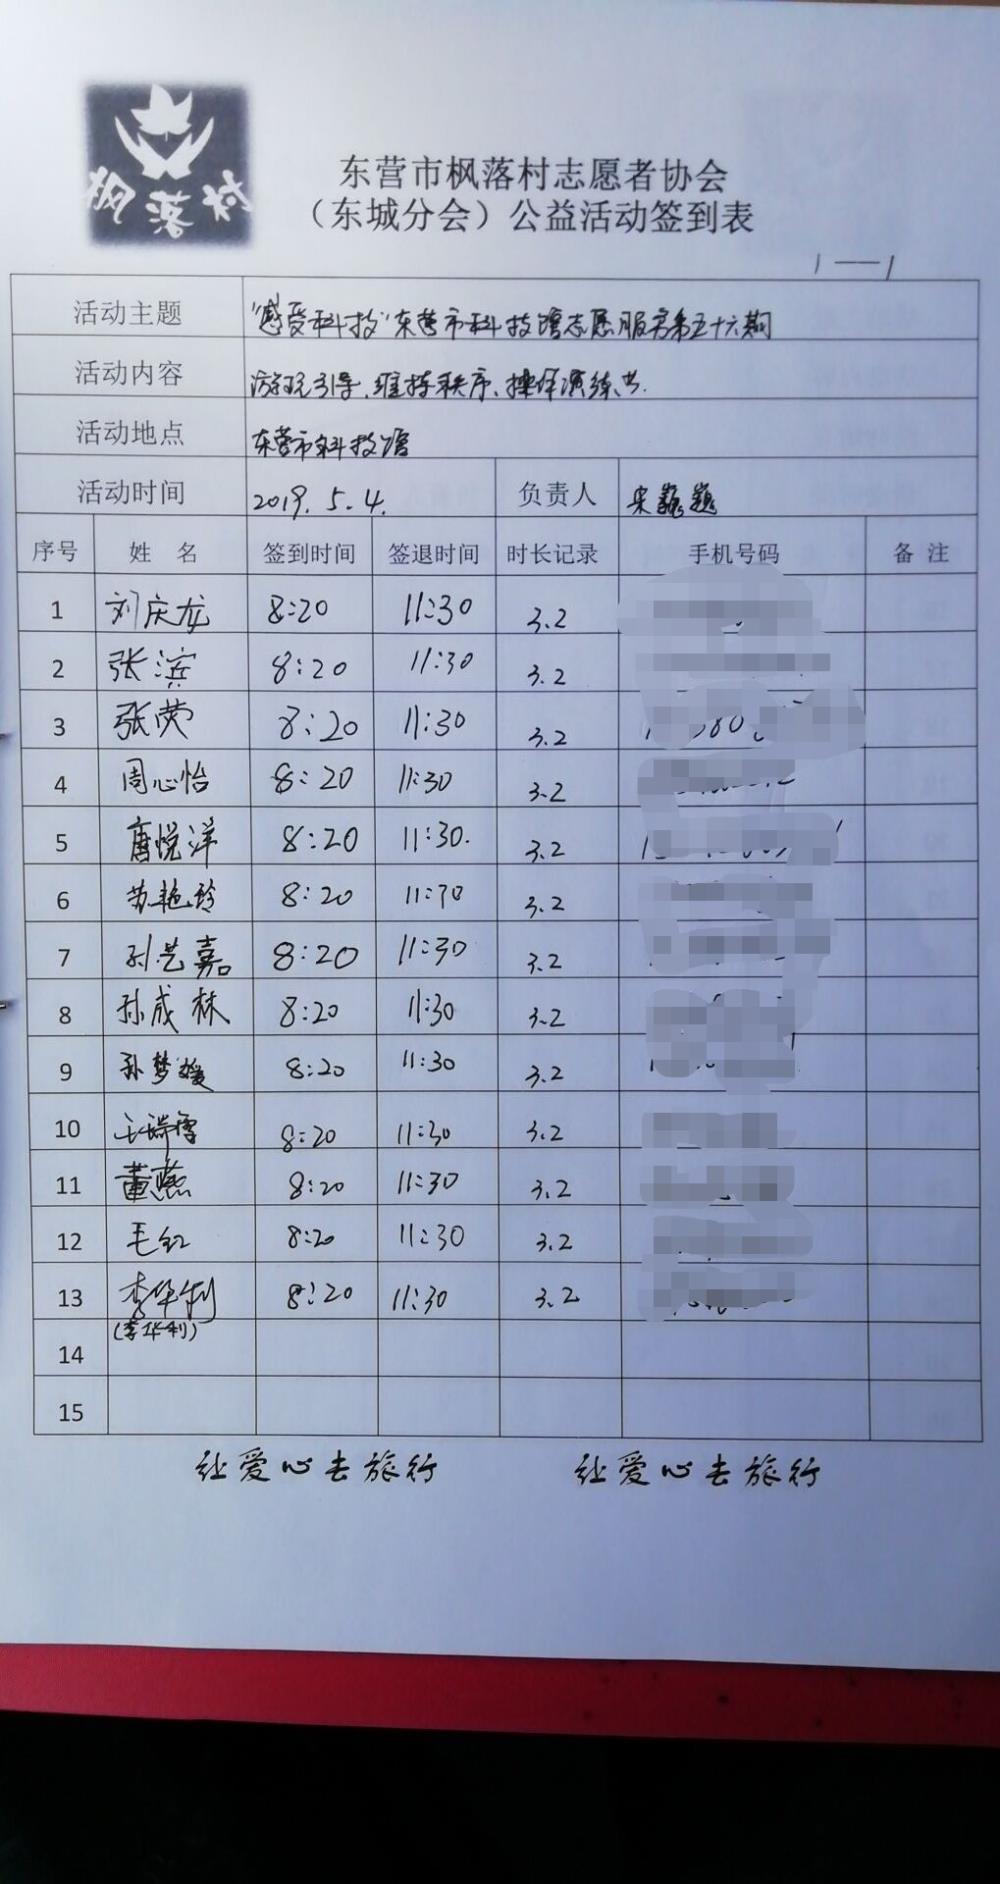 枫落村
东营市枫落村志愿者协会
（东城分会）公益活动签到表
1—1
活动主题 "感受科技"东营市科技馆志愿服务第五十六期
活动内容 游玩引导、维持秩序、操作演练等.
活动地点 东营市科技馆
活动时间 2019.5.4. 负责人 宋巍巍
序号 姓 名 签到时间 签退时间 时长记录 手机号码 备 注
1 刘庆龙 8:20 11:30 3.2
2 张滨 8:20 11:30 3.2
3 张荧 8:20 11:30 3.2
4 周心怡 8:20 11:30 3.2
5 唐悦洋 8:20 11:30. 3.2
6 苏艳玲 8:20 11:30 3.2
7 孙艺嘉 8:20 11:30 3.2
8 孙成林 8:20 11:30 3.2
9 孙梦媛 8:20 11:30 3.2
10 王瑞雪 8:20 11:30 3.2
11 董燕 8:20 11:30 3.2
12 毛红 8:20 11:30 3.2
13 李华利 8:20 11:30 3.2
(李华利)
14
15
让爱心去旅行 让爱心去旅行